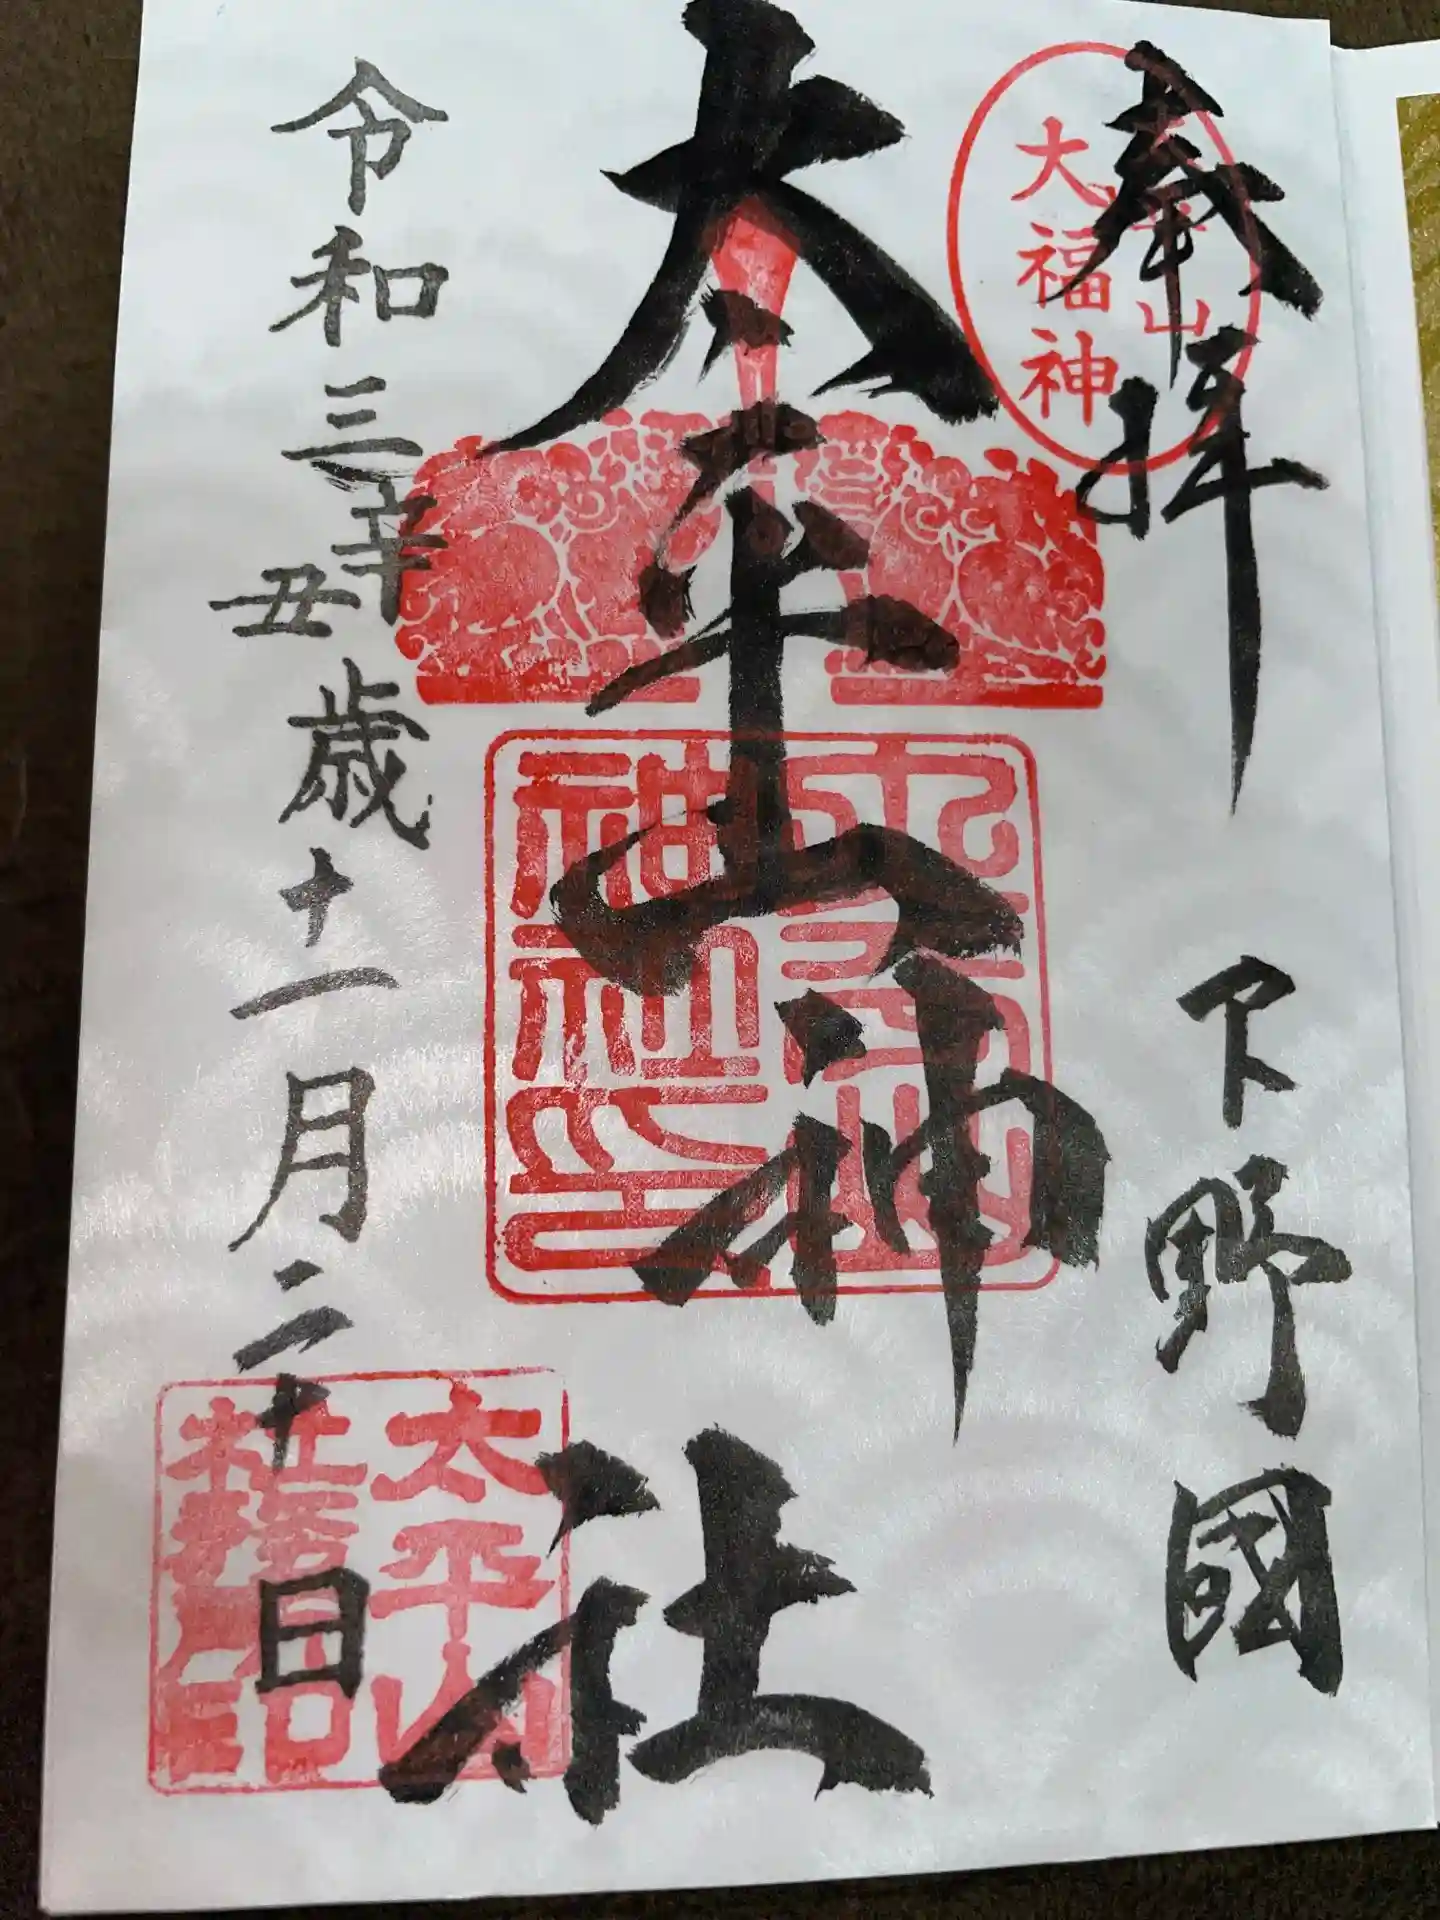 奉拝
下野國
太平山
大福神
太平山神社
太平山
神社印
令和三辛丑歳十一月二十日
太平山
社務所印